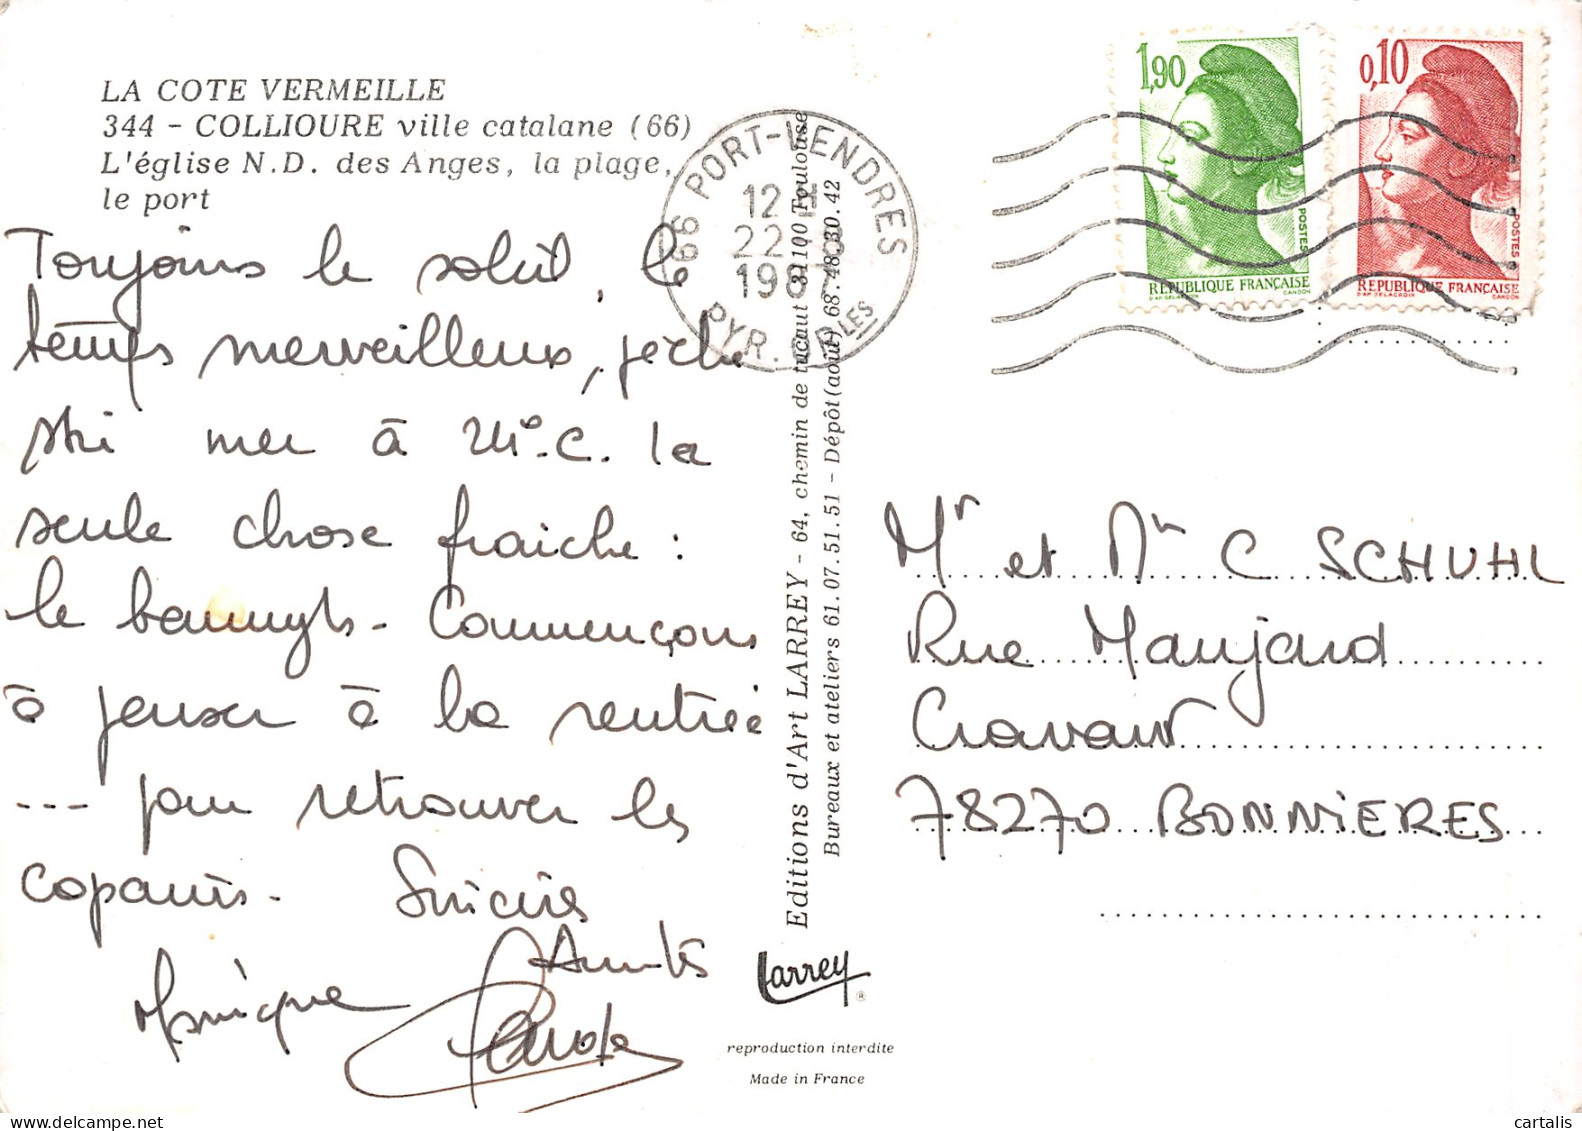 LA COTE VERMEILLE
344 - COLLIOURE ville catalane (66)
L'église N.D. des Anges, la plage,
le port
Toujours le soleil, le
temps merveilleux, pêche
ski mer à M°.C. la
seule chose fraiche :
le bannyls - Commençons
à penser à la rentrée
--- pour retrouver les
copains. Sincères
Amitiés
Monique
66 PORT-VENDRES
12 H
22 - 8
1987
PYR. ORLES
Editions d'Art LARREY - 64, chemin de tucaut 31100 Toulouse
Bureaux et ateliers 61.07.51.51 - Dépôt (août) 68.48.30.42
Larrey ®
reproduction interdite
Made in France
1,90
POSTES
REPUBLIQUE FRANÇAISE
D'AP. DELACROIX GANDON
0,10
POSTES
REPUBLIQUE FRANÇAISE
D'AP. DELACROIX GANDON
Mr et Me C SCHUHL
Rue Maujard
Cravant
78270 BONNIERES
cartalis